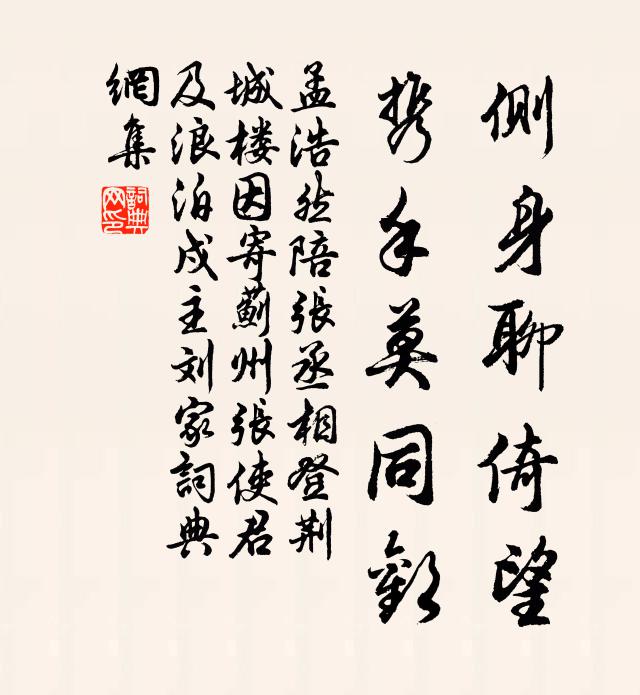 側身聊倚望
携手莫同歡
孟浩然陪張丞相登荆
城楼因寄薊州張使君
及浪泊戍主刘家詞典
網集
詞典网印